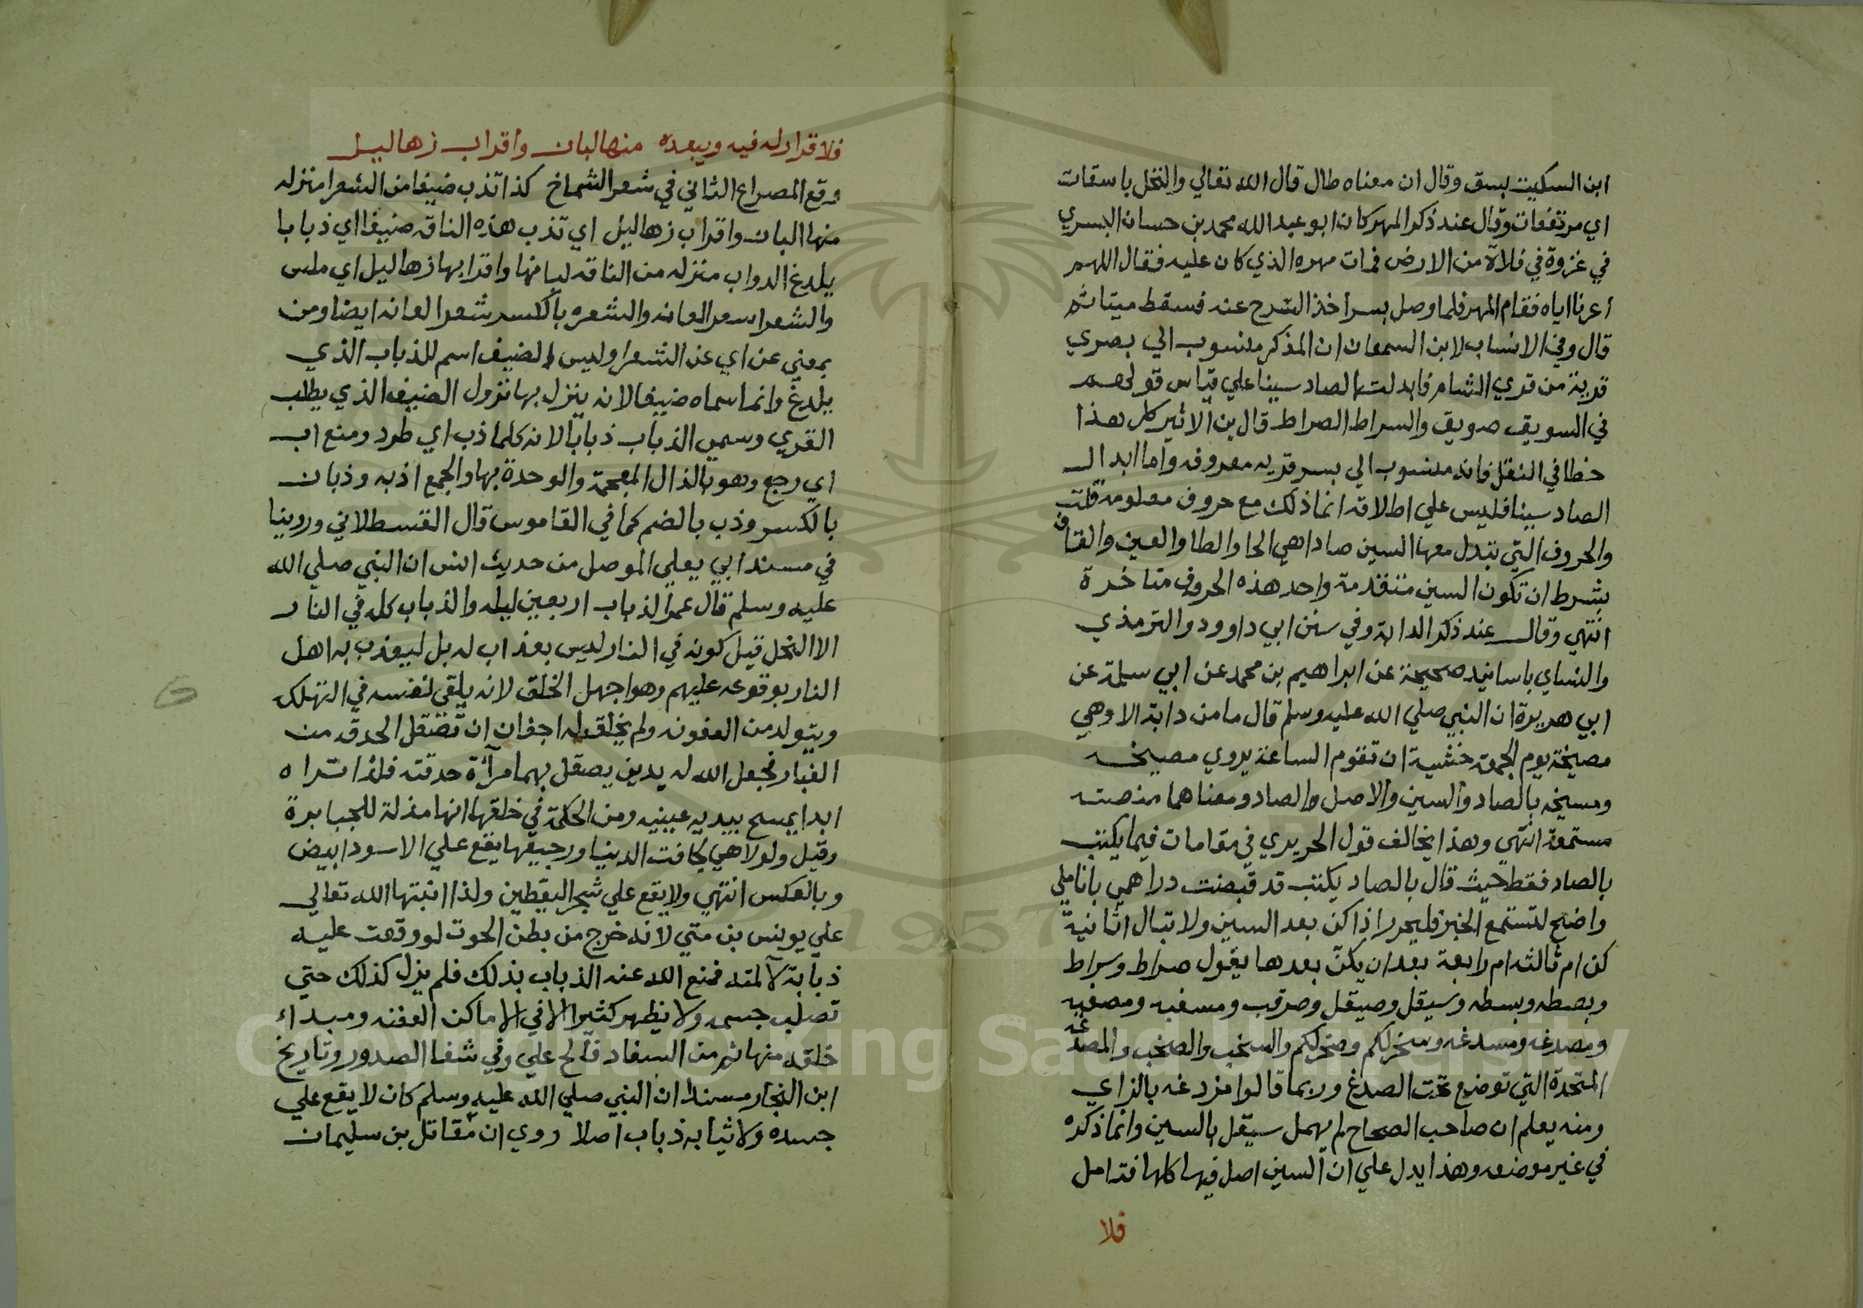 ابن السكيت بسق وقال ان معناه طال قال الله تعالي والنخل باسقات
اي مرتفعات وقال عند ذكر المهر كان ابو عبد الله محمد بن حسان البسري
في غزوة في فلاة من الارض فمات مهره الذي كان عليه فقال اللهم
اعرنا اياه فقام المهر فلما وصل بسرا خذ السرج عنه فسقط ميتا ثم
قال وفي الانساب لابن السمعان ان المذكر منسوب الي بصري
قرية من قري الشام فابدلت الصاد سينا علي قياس قولهم
في السويق صويق والسراط الصراط قال بن الاثير كل هذا
خطا في النقل فانه منسوب الي بسر قريه معروفه واما ابدال
الصاد سينا فليس علي اطلاقه انما ذلك مع حروف معلومة قلت
والحروف التي تبدل معها السين صادا هي الخا والطا والغين والقاف
بشرط ان تكون السين متقدمة واحد هذه الحروف متاخرة
انتهي وقال عند ذكر الدابة وفي سنن ابي داوود والترمذي
والنساي باسانيد صحيحة عن ابراهيم بن محمد عن ابي سلمة عن
ابي هريرة ان النبي صلي الله عليه وسلم قال ما من دابة الا وهي
مصيخة يوم الجمعة خشية ان تقوم الساعة يروي مصيخه
ومسيخه بالصاد والسين والاصل والصاد ومعناهما منصته
مستمعة انتهي وهذا يخالف قول الحريري في مقامات فيما يكتب
بالصاد فقط حيث قال بالصاد يكتب قد قبصت دراهمي باناملي
واصخ لتستمع الخبر فليحرر اذا كن بعد السين ولا تبال اثانية
كن ام ثالثه ام رابعة بعد ان يكن بعدها يقول صراط وسراط
وبصطه وبسطه وسيقل وصيقل وصرقب ومسغبه ومصغبه
ومصدغه ومسدغه وسخر لكم وصخر لكم والسخب والصخب والمصدغه
المتخدة التي توضع تحت الصدغ وربما قالوا مزدغه بالزاي
ومنه يعلم ان صاحب الصحاح لم يهمل سيقل بالسين وانما ذكره
في غير موضعه وهذا يدل علي ان السين اصل فيها كلها فتدامل
فلا
فلا قرار له فيه وبعده منها لبان واقراب زهاليل
وقع المصراع الثاني في شعر الشماخ كذا تذب ضيفا من الشعرا منزله
منها البان واقراب زهاليل اي تذب هذه الناقه ضيفا اي ذبابا
يلدغ الدواب منزله من الناقه لبانها واقرابها زهاليل اي ملس
والشعرا سعر العانه والشعره بالكسر شعر العانه ايضا ومن
بمعني عن اي عن الشعرا وليس الضيف اسم للذباب الذي
يلدغ وانما سماه ضيفا لانه ينزل بها نزول الضيف الذي يطلب
القري وسمي الذباب ذبابا لانه كلما ذب اي طرد ومنع اب
اي رجع وهو بالذال المعجمة والوحدة بها والجمع اذبه وذبان
بالكسر وذب بالضم كما في القاموس قال القسطلاني وروينا
في مسند ابي يعلي الموصل من حديث انس ان النبي صلي الله
عليه وسلم قال عمر الذباب اربعين ليله والذباب كله في النار
الا النحل قيل كونه في النار ليس بعذاب له بل ليعذب به اهل
النار بوقوعه عليهم وهو اجهل الخلق لانه يلقي لنفسه في التهلكه
ويتولد من العفونه ولم يخلق له اجفان ان تصقل الحدقه من
الغبار فجعل الله له يدين يصقل بهما مرآة حدقته فلذا تراه
ابدا يمسح بيديه عينيه ومن الحكمة في خلقها انها مذلة للجبابرة
وقيل ولولا هي لجافت الدنيا ورجيعها يقع علي الاسود ابيض
وبالعكس انتهي ولا يقع علي شجر اليقطين ولذا انبتها الله تعالي
علي يونس بن متي لانه خرج من بطن الحوت لو وقعت عليه
ذبابة لآلمته فمنع الله عنه الذباب بذلك فلم يزل كذلك حتي
تصلب جسمه ولا يظهر كثيرا الا في الاماكن العفنه ومبداء
خلقه منها ثم من السفاد فآلح علي وفي شفا الصدور وتاريخ
ابن النجار مسندا ان النبي صلي الله عليه وسلم كان لا يقع علي
جسده ولا ثيابه ذباب اصلا روي ان مقاتل بن سليمان